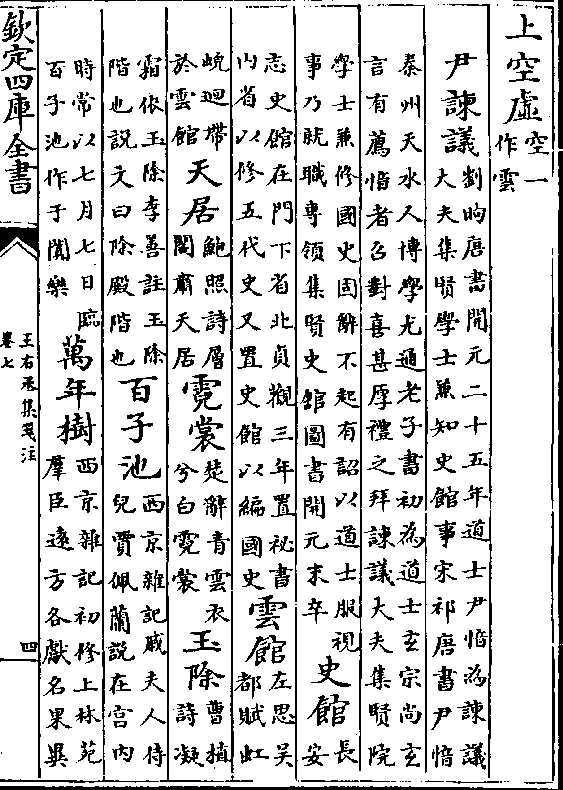 上空虛空一作雲
尹諫議劉昫唐書開元二十五年道士尹愔為諫議大夫集賢學士兼知史館事宋祁唐書尹愔
秦州天水人博學尤通老子書初為道士玄宗尚玄言有薦愔者召對喜甚厚禮之拜諫議大夫集賢院
學士兼修國史固辭不起有詔以道士服視事乃就職專領集賢史館圖書開元末卒史館長安
志史館在門下省北貞觀三年置祕書内省以修五代史又置史館以編國史雲館左思吳都賦虹
蜺迴帶於雲館天居鮑照詩層閣肅天居霓裳楚辭青雲衣兮白霓裳玉除曹植詩凝
霜依玉除李善註玉除階也説文曰除殿階也百子池西京雜記戚夫人侍兒賈佩蘭説在宫内
時常以七月七日臨百子池作于闐樂萬年樹西京雜記初修上林苑羣臣遠方各獻名果異
欽定四庫全書
王右丞集箋注
卷七
四